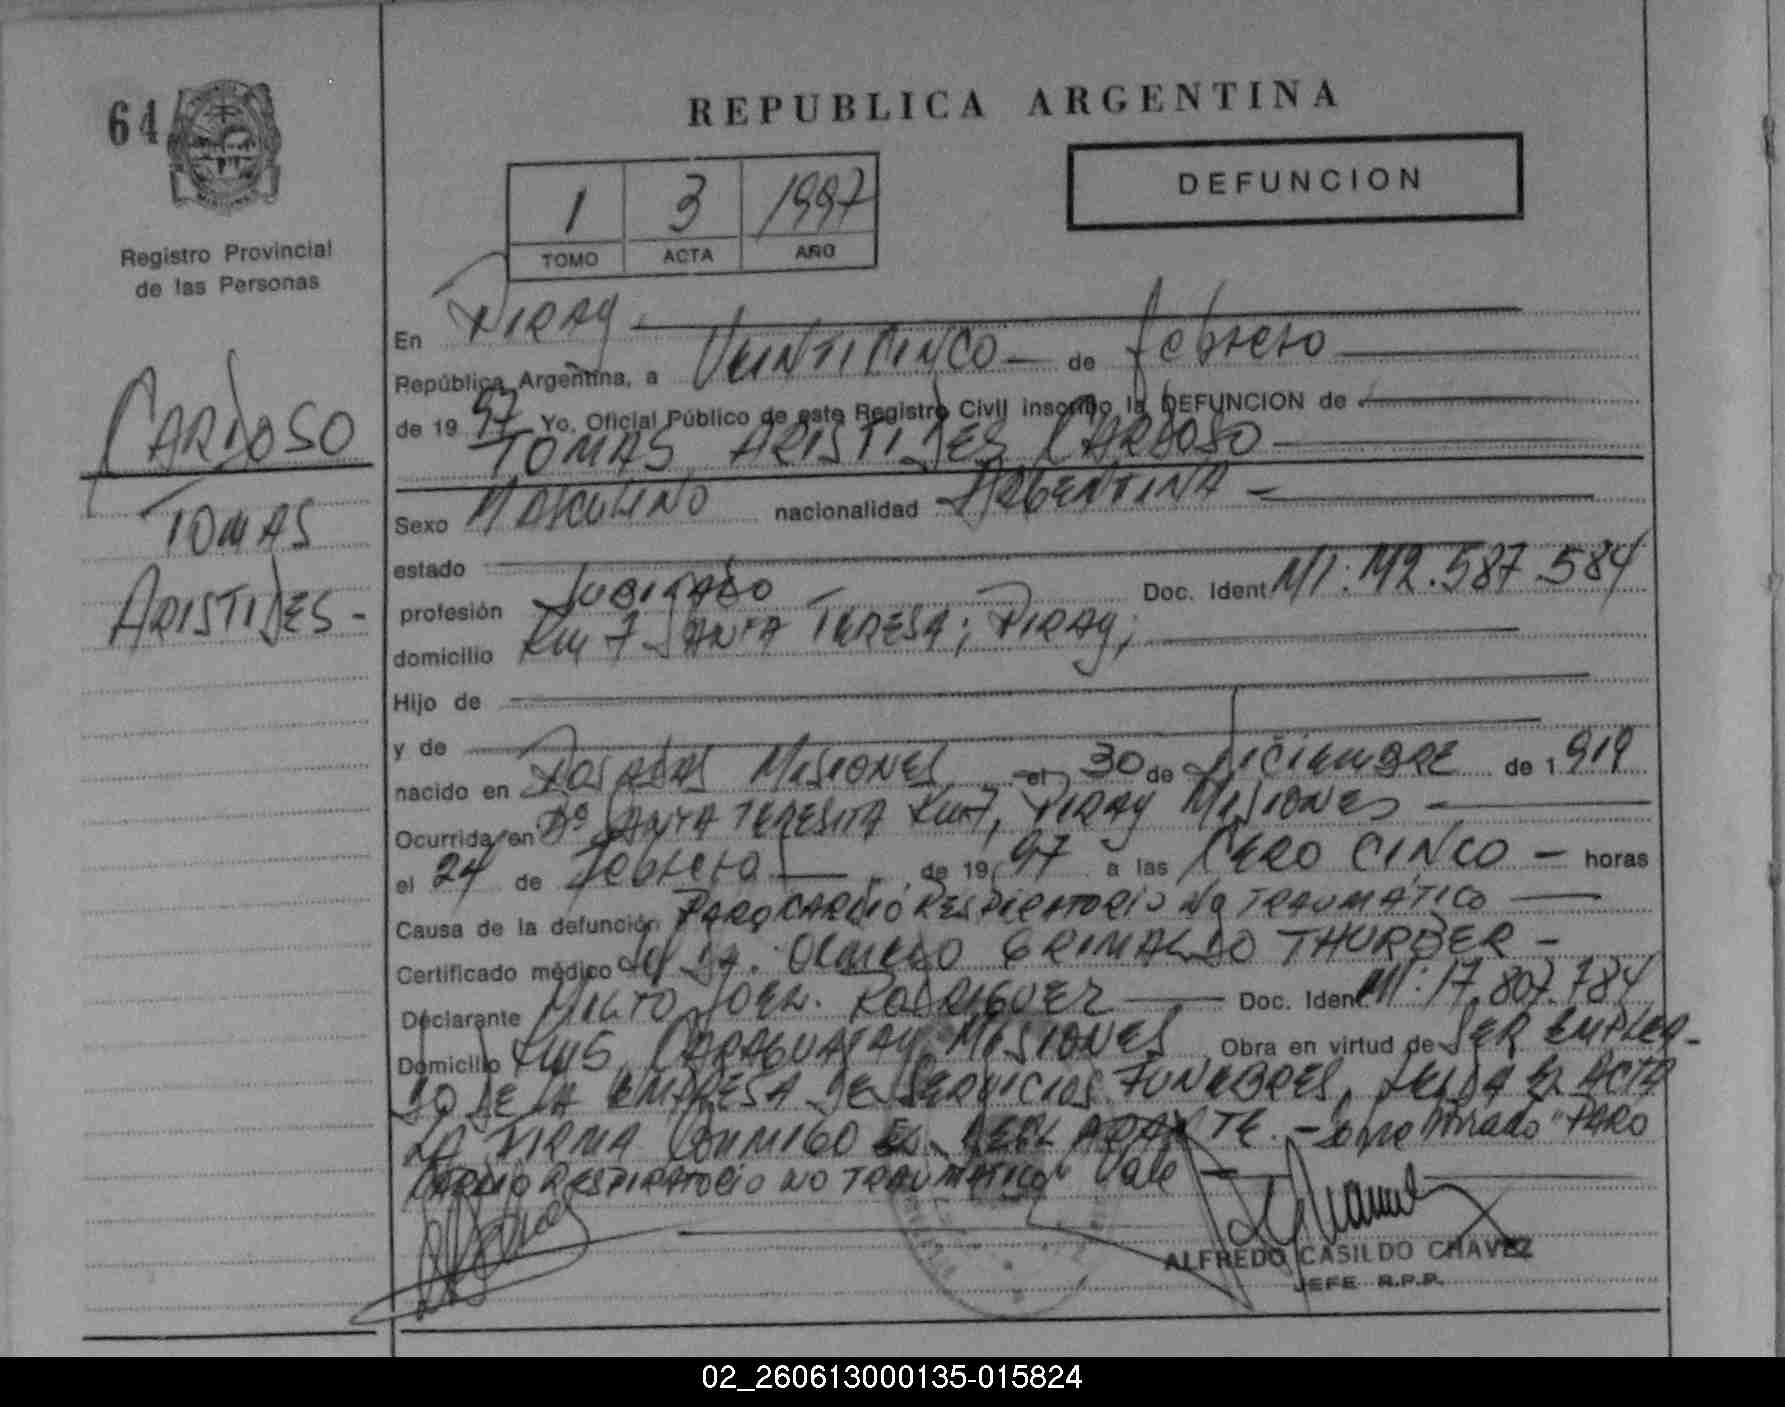 64
REPUBLICA ARGENTINA
DEFUNCION
1 3 1997
TOMO ACTA AÑO
Registro Provincial
de las Personas
CARDOSO
TOMAS
ARISTIDES -
En PIRAY
República Argentina, a VEINTICINCO — de febrero
de 19 97 Yo, Oficial Público de este Registro Civil inscribo la DEFUNCION de
TOMAS ARISTIDES CARDOSO
Sexo MASCULINO nacionalidad ARGENTINA -
estado
profesión JUBILADO Doc. Ident MI: M2.587.584
domicilio Km 7 SANTA TERESA; PIRAY;
Hijo de
y de
nacido en POSADAS MISIONES el 30 de DICIEMBRE de 1 919
Ocurrida en Bº SANTA TERESITA Km 7, PIRAY MISIONES -
el 24 de febrero de 19 97 a las CERO CINCO - horas
Causa de la defunción PARO CARDIO RESPIRATORIO NO TRAUMÁTICO
Certificado médico del Dr. OLMEDO GRIMALDO THURBER -
Declarante JOEL RODRIGUEZ Doc. Ident MI: 17.807.784
Domicilio Km 5, CARAGUATAY MISIONES Obra en virtud de SER EMPLEA-
DO DE LA EMPRESA DE SERVICIOS FUNEBRES, LEIDA EL ACTA
LA FIRMA CONMIGO EL DECLARANTE. - sobre borrado "PARO
CARDIO RESPIRATORIO NO TRAUMÁTICO" Vale
ALFREDO CASILDO CHAVEZ
JEFE R.P.P.
02_260613000135-015824